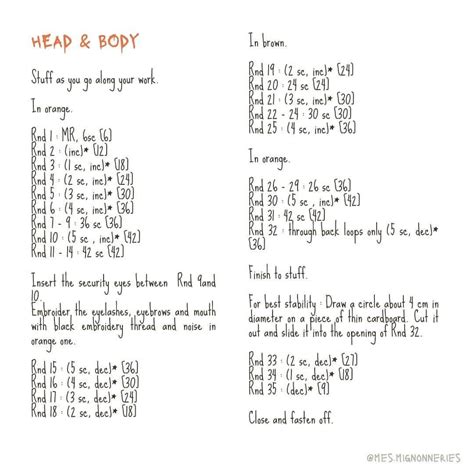 HEAD & BODY
Stuff as you go along your work.
In orange.
Rnd 1 : MR, 6sc [6]
Rnd 2 : (inc)* [12]
Rnd 3 : (1 sc, inc)* [18]
Rnd 4 : (2 sc, inc)* [24]
Rnd 5 : (3 sc, inc)* [30]
Rnd 6 : (4 sc, inc)* [36]
Rnd 7 - 9 : 36 sc [36]
Rnd 10 : (5 sc , inc)* [42]
Rnd 11 - 14 : 42 sc [42]
Insert the security eyes between Rnd 9and
10.
Embroider the eyelashes, eyebrows and mouth
with black embroidery thread and noise in
orange one.
Rnd 15 : (5 sc, dec)* [36]
Rnd 16 : (4 sc, dec)* [30]
Rnd 17 : (3 sc, dec)* [24]
Rnd 18 : (2 sc, dec)* [18]
In brown.
Rnd 19 : (2 sc, inc)* [24]
Rnd 20 : 24 sc [24]
Rnd 21 : (3 sc, inc)* [30]
Rnd 22 - 24 : 30 sc [30]
Rnd 25 : (4 sc, inc)* [36]
In orange.
Rnd 26 - 29 : 26 sc [36]
Rnd 30 : (5 sc , inc)* [42]
Rnd 31 : 42 sc [42]
Rnd 32 : through back loops only (5 sc, dec)*
[36]
Finish to stuff.
For best stability : Draw a circle about 4 cm in
diameter on a piece of thin cardboard. Cut it
out and slide it into the opening of Rnd 32.
Rnd 33 : (2 sc, dec)* [27]
Rnd 34 : (1 sc, dec)* [18]
Rnd 35 : (dec)* [9]
Close and fasten off.
@MES.MIGNONNERIES